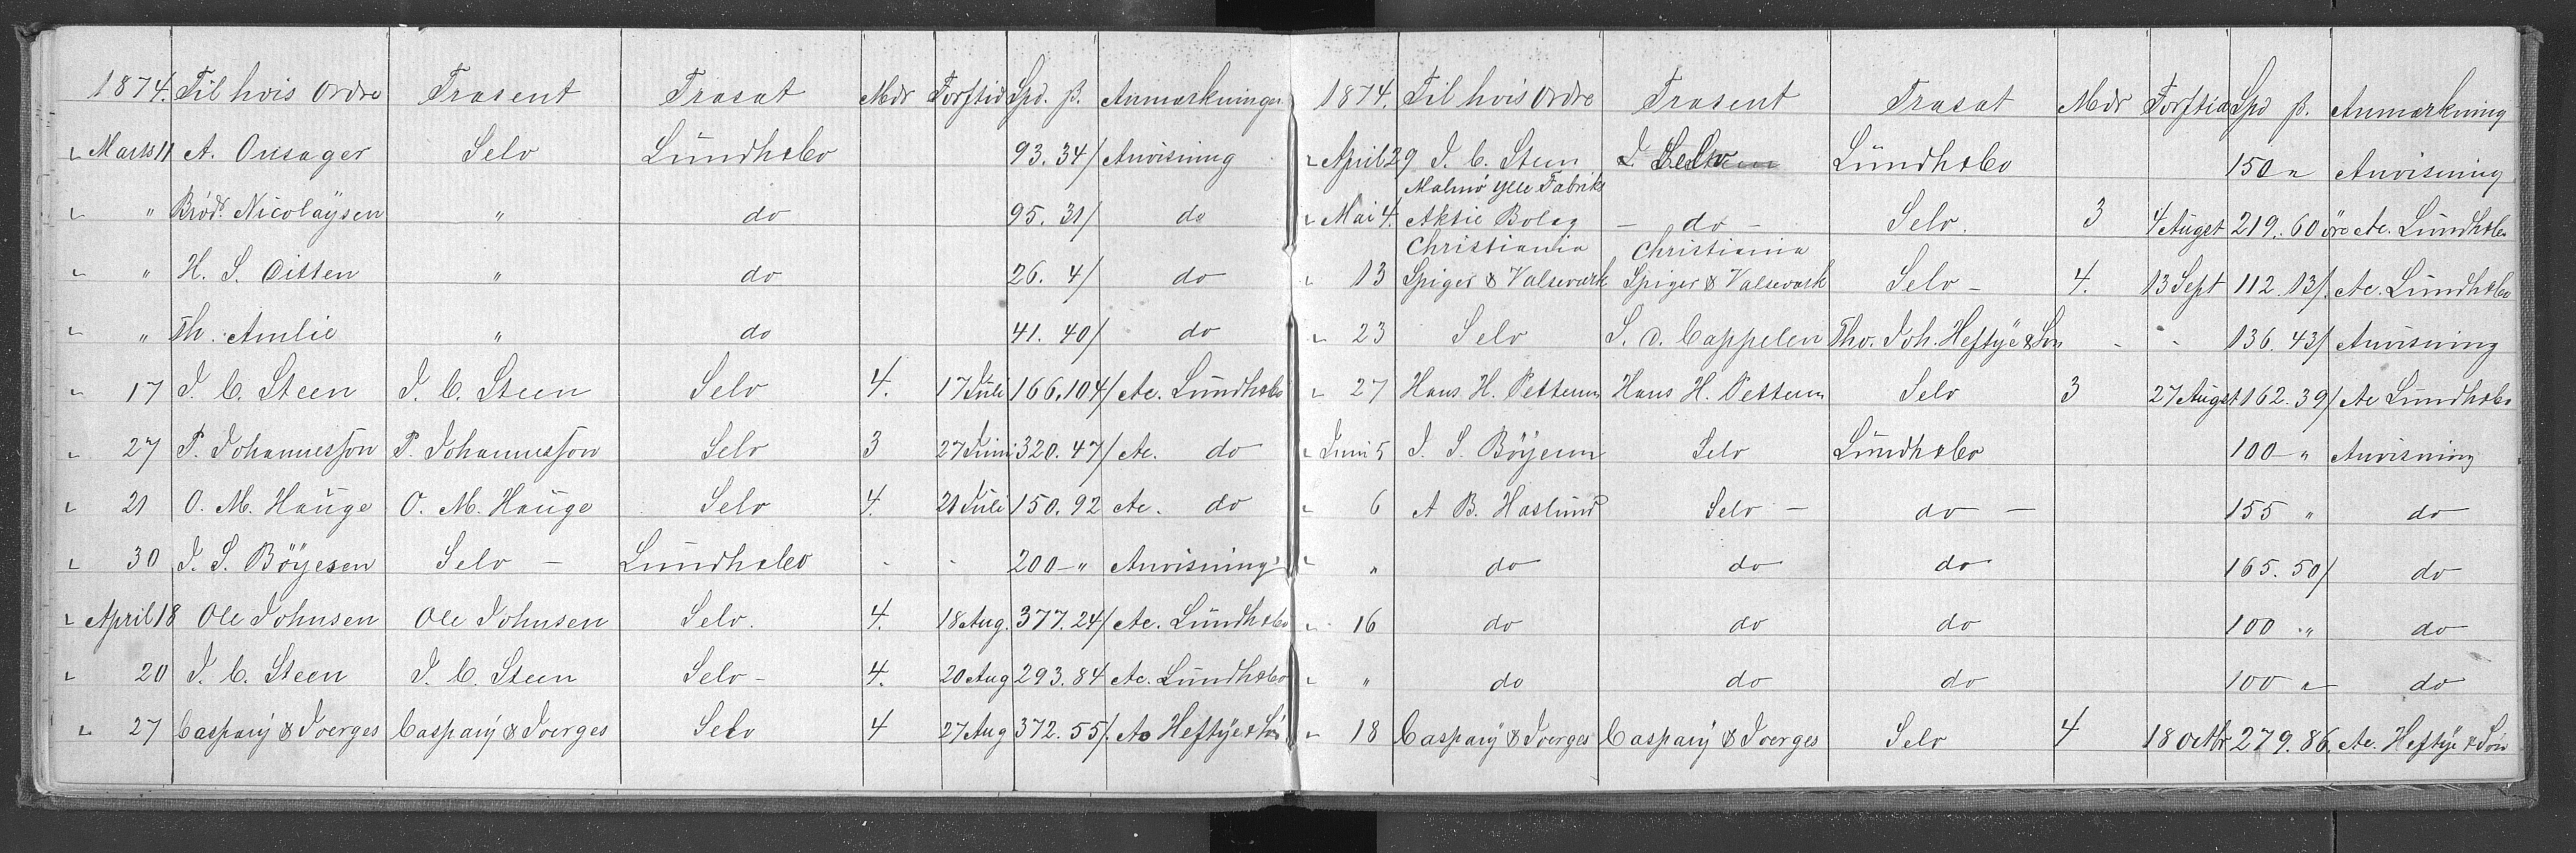 1874. Til hvis Ordre Trasent Trasat Mdr Forftid Spd. β. Anmærkninger
Marts 11 A. Onsager Selv Lundhsbo 93. 34/ Anvisning
" Brødr. Nicolaÿsen " do 95. 31/ do
" H. S. Ditten " do 26. 4/ do
" Th. Amlie " do 41. 40/ do
17 J. C. Steen J. C. Steen Selv 4. 17 Juli 166.104/ Ac. Lundhsbo
27 P. Johannesson P. Johannesson Selv 3 27 Juni 320. 47/ Ac. do
21 O. M. Hauge O. M. Hauge Selv 4. 21 Juli 150. 92 Ac. do
30 J. S. Böyesen Selv – Lundhsbo - - 200 – " Anvisning
April 18 Ole Johnsen Ole Johnsen Selv. 4. 18 Aug. 377. 24/ Ac. Lundhsbo
20 J. C. Steen J. C. Steen Selv – 4. 20 Aug 293. 84 Ac. Lundhsbo
27 Caspary & Joerges Caspary & Joerges Selv 4 27 Aug 372. 55/. Ac Heftye & Sön
1874. Til hvis Ordre Trasent Trasat Mdr Forftid Spd β. Anmærkning
April 29 J. C. Steen Selv Lundhsbo 150 " Anvisning
Malmö Ylle Fabriks
Mai 4. Aktie Bolag – do – Selv. 3 4 Augst 219. 60 öre Ac. Lundhsbo
Christiania Christiania
13 Spiger & Valseværk Spiger & Valseværk Selv – 4. 13 Sept 112. 13/. Ac. Lundhsbo
23 Selv S. D. Cappelen Tho. Joh. Heftye & Søn - - 136. 43/ Anvisning
27 Hans H. Petterun Hans H. Petterun Selv 3 27 Augst 162. 39/ Ac Lundhsbo
Juni 5 J. S. Böyesen Selv Lundhsbo 100 – " Anvisning
6 A B. Haslund Selv – do – 155 " do
" do do do 165. 50/ do
16 do do do 100 " do
" do do do 100 " do
18 Caspary & Joerges Caspary & Joerges Selv 4 18 Octbr 279. 86. Ac. Heftye & Sön